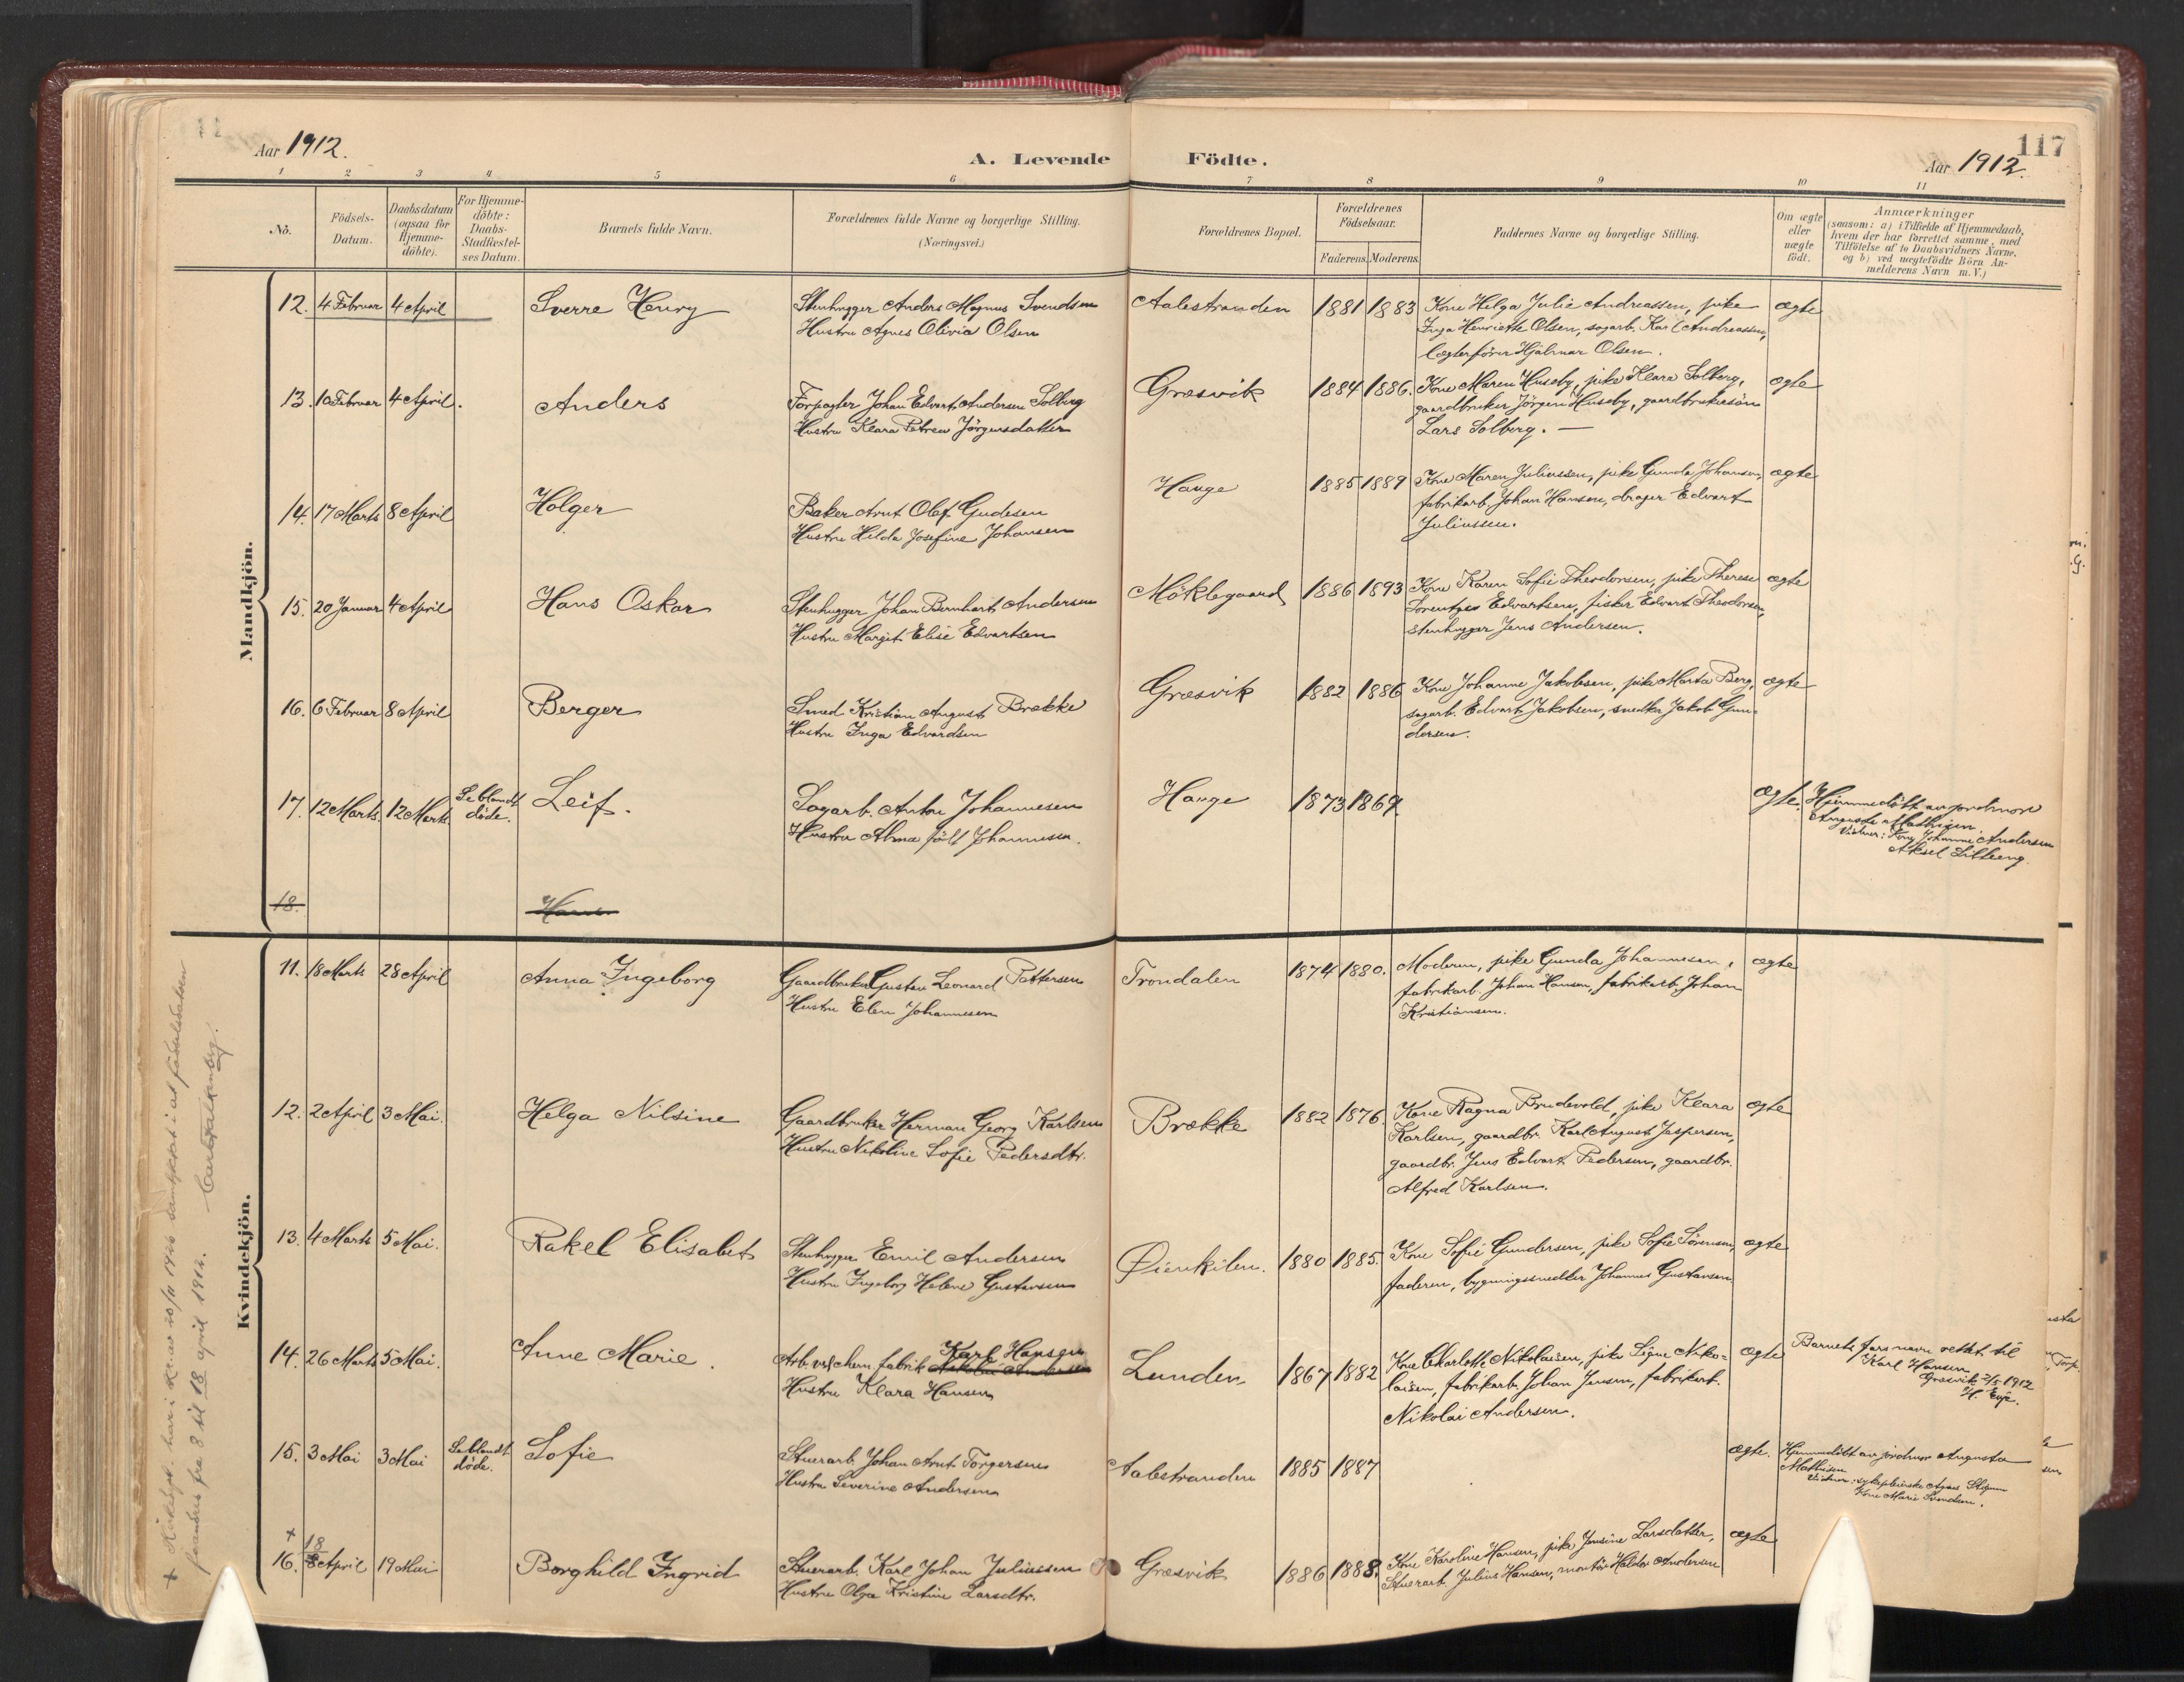 Aar 1912.
A. Levende Födte.
117
Aar 1912.
1 2 3 4 5 6 7 8 9 10 11
Nö.
Födsels-Datum.
Daabsdatum (ogsaa for Hjemme-döbte).
For Hjemme-döbte: Daabs-Stadfæstel-ses Datum.
Barnets fulde Navn.
Forældrenes fulde Navne og borgerlige Stilling. (Næringsvei.)
Forældrenes Bopæl.
Forældrenes Födselsaar.
Faderens. Moderens.
Faddernes Navne og borgerlige Stilling.
Om ægte eller uægte födt.
Anmærkninger
(saasom: a) i Tilfælde af Hjemmedaab, hvem der har forrettet samme, med Tilföielse af to Daabsvidners Navne. og b) ved uægtefödte Börn An-melderens Navn m. V.)
Mandkjön.
12. 4 Februar 4 April Sverre Henry Stenhugger Anders Magnus Svendsen Aalestranden 1881 1883 Kone Helga Julie Andreassen, pike ægte
Hustru Agnes Olivia Olsen Inga Henriette Olsen, sagarb. Karl Andreassen,
lægterfører Hjalmar Olsen.
13. 10 Februar 4 April. Anders Forpagter Johan Edvart Andersen Solberg Græsvik 1884 1886. Kone Maren Huseby, pike Klara Solberg, ægte
Hustru Klara Petrea Jörgensdatter gaardbruker Jörgen Huseby, gaardbrukersön
Lars Solberg. —
14. 17 Marts 8 April Holger Baker Arnt Olaf Gudesen Hauge 1885 1889 Kone Maren Juliussen, pike Gunda Johansen, ægte
Hustru Hilda Josefine Johansen fabrikarb. Johan Hansen, drager Edvart
Juliussen.
15. 20 Januar 4 April Hans Oskar Stenhugger Johan Bernhart Andersen Möklegaard 1886 1893 Kone Karen Sofie Theodorsen, pike Therese ægte
Hustru Margit Elise Edvartsen Lorentze Edvartsen, fisker Edvart Theodorsen,
stenhugger Jens Andersen.
16. 6 Februar 8 April Berger Smed Kristian August Brække Græsvik 1882 1886 Kone Johanne Jakobsen, pike Marta Berg, ægte
Hustru Inga Edvardsen sagarb. Edvart Jakobsen, snedker Jakob Gun-
dersen.
17. 12 Marts. 12 Marts. Se blandt döde. Leif. Sagarb. Anton Johannesen Hauge 1873 1869. ægte. Hjemmedöbt av jordmor
Hustru Alma födt Johannesen. Augusta Mathisen.
Vidner: Kone Johanne Andersen
Aksel Lilleeng.
18. Hans
Kvindekjön.
11. 18 Marts 28 April Anna Ingeborg Gaardbruker Gustav Leonard Pettersen Trondalen 1874 1880. Moderen, pike Gunda Johannesen, ægte
Hustru Elen Johannesen fabrikarb. Johan Hansen, fabrikarb. Johan
Kristiansen.
12. 2 April 3 Mai. Helga Nilsine Gaardbruker Herman Georg Karlsen Brække 1882 1876. Kone Ragna Brudevold, pike Klara ægte
Hustru Nikoline Sofie Pedersdtr. Karlsen, gaardbr. Karl August Jespersen,
gaardbr. Jens Edvart Pedersen, gaardbr.
Alfred Karlsen.
13. 4 Marts 5 Mai. Rakel Elisabet Stenhugger Emil Andersen Øienkilen. 1880 1885. Kone Sofie Gundersen, pike Sofie Sörensen, ægte
Hustru Ingeborg Helene Gustavsen faderen, bygningssnedker Johannes Gustavsen
14. 26 Marts 5 Mai. Anne Marie. Arb. ved chem. fabrik Nikolai Andersen Karl Hansen Lunden 1867 1882 Kone Charlotte Nikolaisen, pike Signe Niko- ægte Barnets fars navn rettet til
Hustru Klara Hansen laisen, fabrikarb. Johan Jensen, fabrikarb. Karl Hansen
Nikolai Andersen. Græsvik 2/5 1912
H. Evje.
15. 3 Mai 3 Mai Se blandt döde. Sofie Stuerarb. Johan Arnt Torgersen Aalestranden 1885 1887 ægte. Hjemmedöbt av jordmor Augusta
Hustru Severine Andersen Mathisen
Vidner: sykepleierske Agnes
Kone Marie Svendsen.
+ 18
16. 8 April 19 Mai Borghild Ingrid Stuerarb. Karl Johan Juliussen Græsvik 1886 1888. Kone Karoline Hansen, pike Jensine Larsdatter, ægte
Hustru Olga Kristine Larsdtr. Stuerarb. Julius Hansen, montör Haldor Andersen
+ Kirkedept. har i skr. av 20/11 1926 samtykket i at födselsdatoen
forandres fra 8 til 18 april 1912.